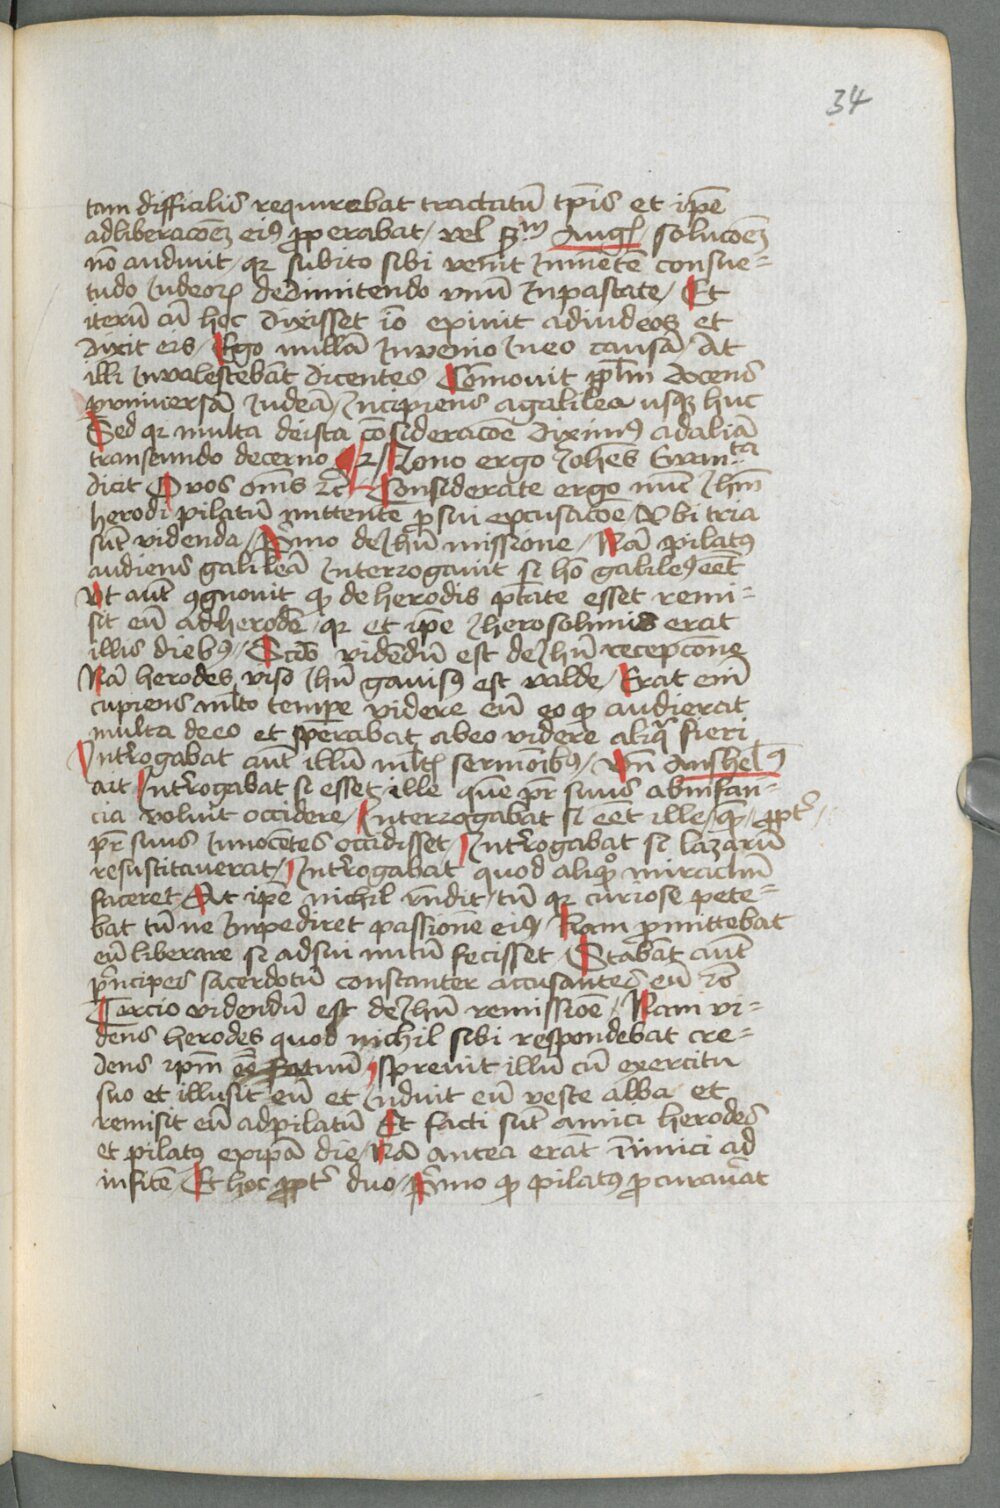 34
tam difficilis requirebat tractatū tp̄is et ip̄e
adliberacoēʒ eiꝰ ꝓperabat / vel sm̄ Augꝭ / solucoēʒ
nō audiuit / qꝛ subito sibi venit Inmētē consue=
tudo Iudeoꝝ dedimittendo vnū Inpascate / Et
iterū cū hoc dixisset iō exiuit adiudeos et
dixit eis / Ego nullā Inuenio Ineo causā / At
illi Inualescebāt dicentes / Cōmouit ppl̄m docens
ꝑvniuersā Iudeā / Incipiens agalilea usqꝫ huc
Sed qꝛ multa deista cōsideracōe diximꝰ adaliā
transeundo decerno Zono ergo Ioheēs
dicit O vos om̄s ꝛc̄ Considerate ergo nūc Ihm̄
herodi pilatū mittentē ꝓsui excusacōe / Vbi tria
sūt videnda / P̄mo deIhū missione / Nā pilatꝰ
audiens galileā Interrogauit si hō galileꝰ eēt
Vt aūt ꝯgnouit qꝙ deherodis ptāte esset remi=
sit eū adherodē / qꝛ et ip̄e Iherosolimis erat
illis diebꝰ / Scd̄o vidēdū est deIhū recepcone
Nā herodes viso Ihū gauisꝰ est valde / Erat eim̄
cupiens ml̄to tempe videre eū eo qꝙ audierat
multa deeo et sperabat abeo videre aliqͣ fieri
Int̄rogabat aūt illū ml̄tꝭ sermōibꝰ / Vn̄ Anshelꝰ
ait Int̄rogabat si esset ille quē pr̄ suus abinfan=
cia voluit occidere / Interrogabat si eēt ille / qꝙ / ꝓpt̄ /
pr̄ suus Innocētes occidisset / Int̄rogabat si lazarū
resustitauerat / Int̄rogabat quod aliqꝙ miraclm̄
faceret At ip̄e nichil rn̄dit / tū qꝛ curiose pete=
bat tū ne Inpediret passionē eiꝰ / Nam ꝓmittebat
eū liberare si adsui nutū fecisset / Stabāt aūt
p̄ncipes sacerdotū constanter accusantes eū ꝛc̄
Tercio videndū est deIhū remissiōe / Nam vi=
dens herodes quod nichil sibi respondebat cre=
dens ipm̄ eē fatuū / spreuit illū cū exercitu
suo et illusit eū et Induit eū veste alba et
remisit eū adpilatū Et facti sūt amici herodes
et pilatꝰ exipā die / Nā antea erāt īimici ad
inuicē / Et hoc ꝓpt̄ duo / P̄mo qꝙ pilatꝰ ꝓcurauāt